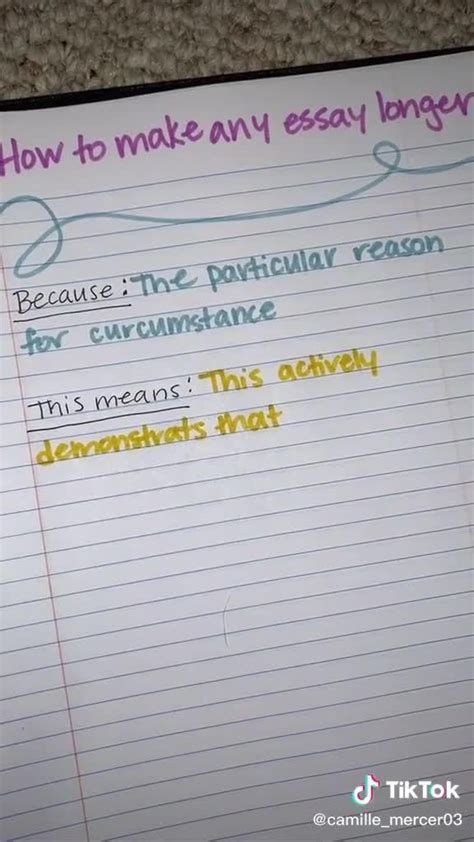 How to make any essay longer
Because: The particular reason
for curcumstance
This means: This actively
demonstrats that
TikTok
@camille_mercer03